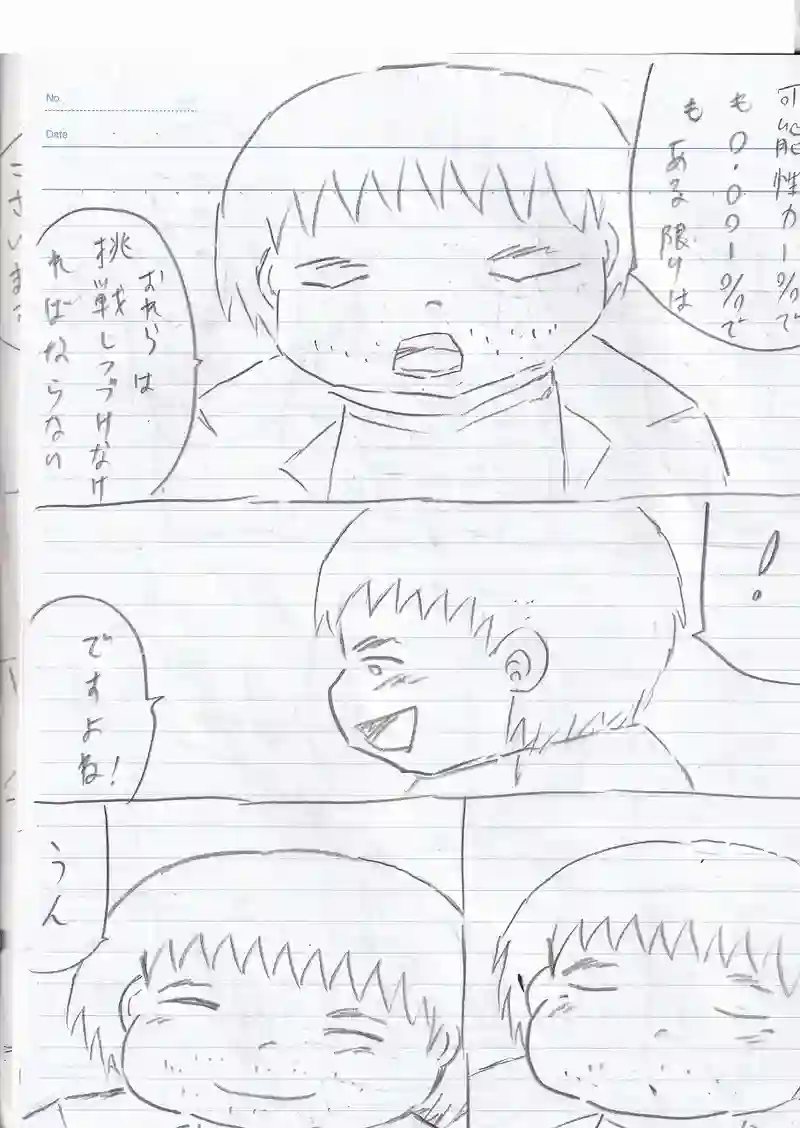 No.
Date
可能性が1%で
も0.001%で
も ある 限りは
おれらは
挑戦しつづけなけ
ればならない
!
ですよね!
うん